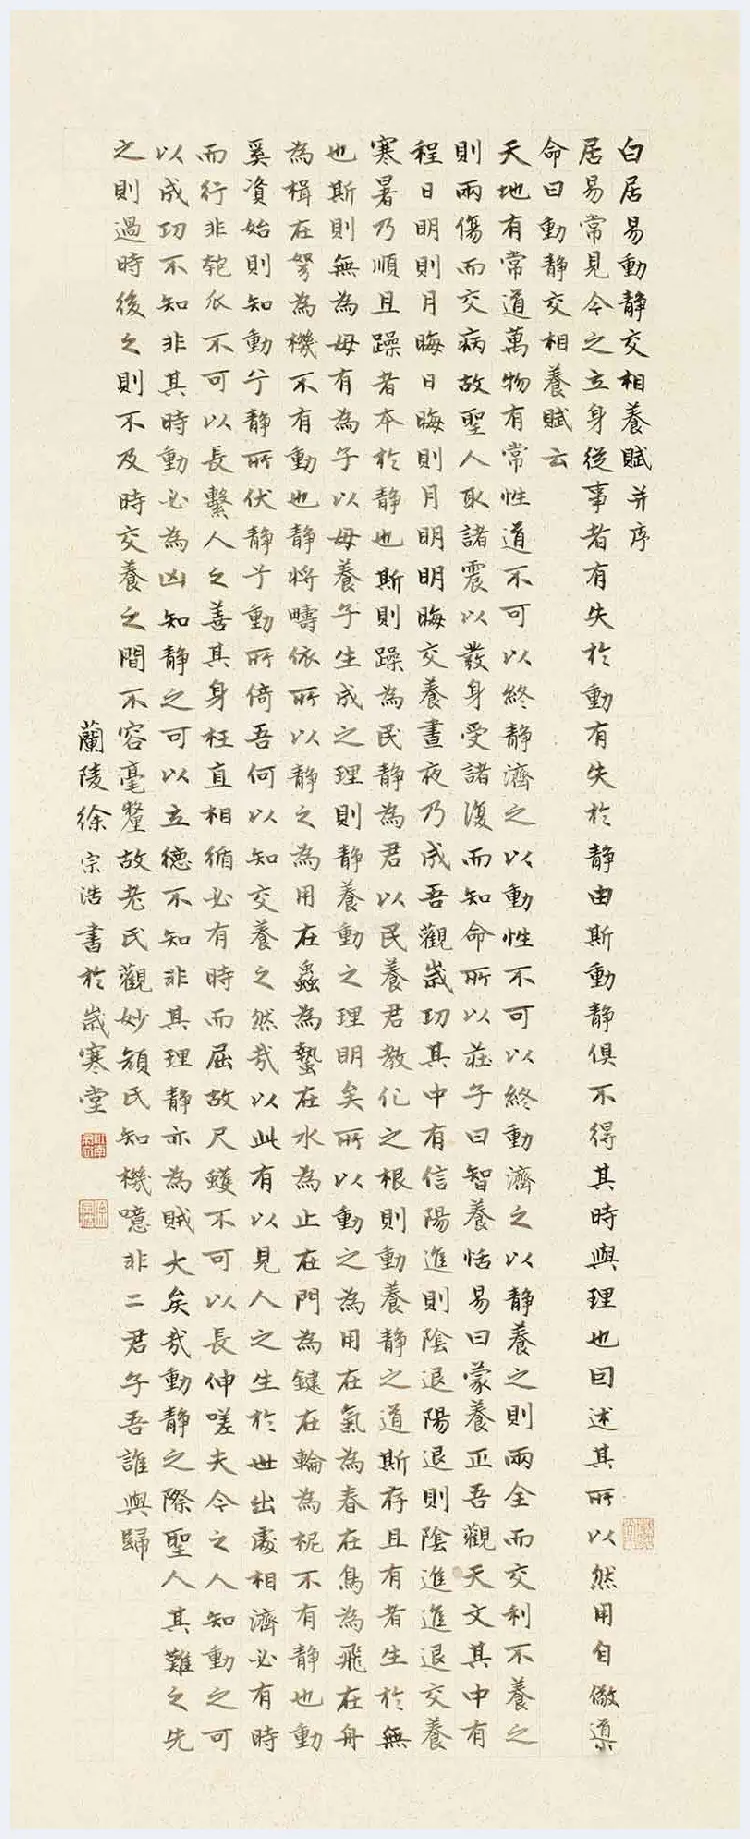 白居易動静交相養賦 并序
居易常見今之立身從事者有失於動有失於静由斯動静俱不得其時與理也因述其所以然用自儆導
命曰動静交相養賦云
天地有常道萬物有常性道不可以終静濟之以動性不可以終動濟之以静養之則兩全而交利不養之
則兩傷而交病故聖人取諸震以發身受諸復而知命所以莊子曰智養恬易曰蒙養正吾觀天文其中有
程日明則月晦日晦則月明明晦交養晝夜乃成吾觀歲功其中有信陽進則陰退陽退則陰進進退交養
寒暑乃順且躁者本於静也斯則躁為民静為君以民養君教化之根則動養静之道斯存且有者生於無
也斯則無為母有為子以母養子生成之理則静養動之理明矣所以動之為用在氣為春在鳥為飛在舟
為楫在弩為機不有動也静將疇依所以静之為用在蟲為蟄在水為止在門為鍵在輪為柅不有静也動
奚資始則知動兮静所伏静兮動所倚吾何以知交養之然哉以此有以見人之生於世出處相濟必有時
而行非匏瓜不可以長繫人之善其身枉直相循必有時而屈故尺蠖不可以長伸嗟夫今之人知動之可
以成功不知非其時動必為凶知静之可以立德不知非其理静亦為賊大矣哉動静之際聖人其難之先
之則過時後之則不及時交養之間不容毫釐故老氏觀妙顏氏知機噫非二君子吾誰與歸
蘭陵徐宗浩書於歲寒堂